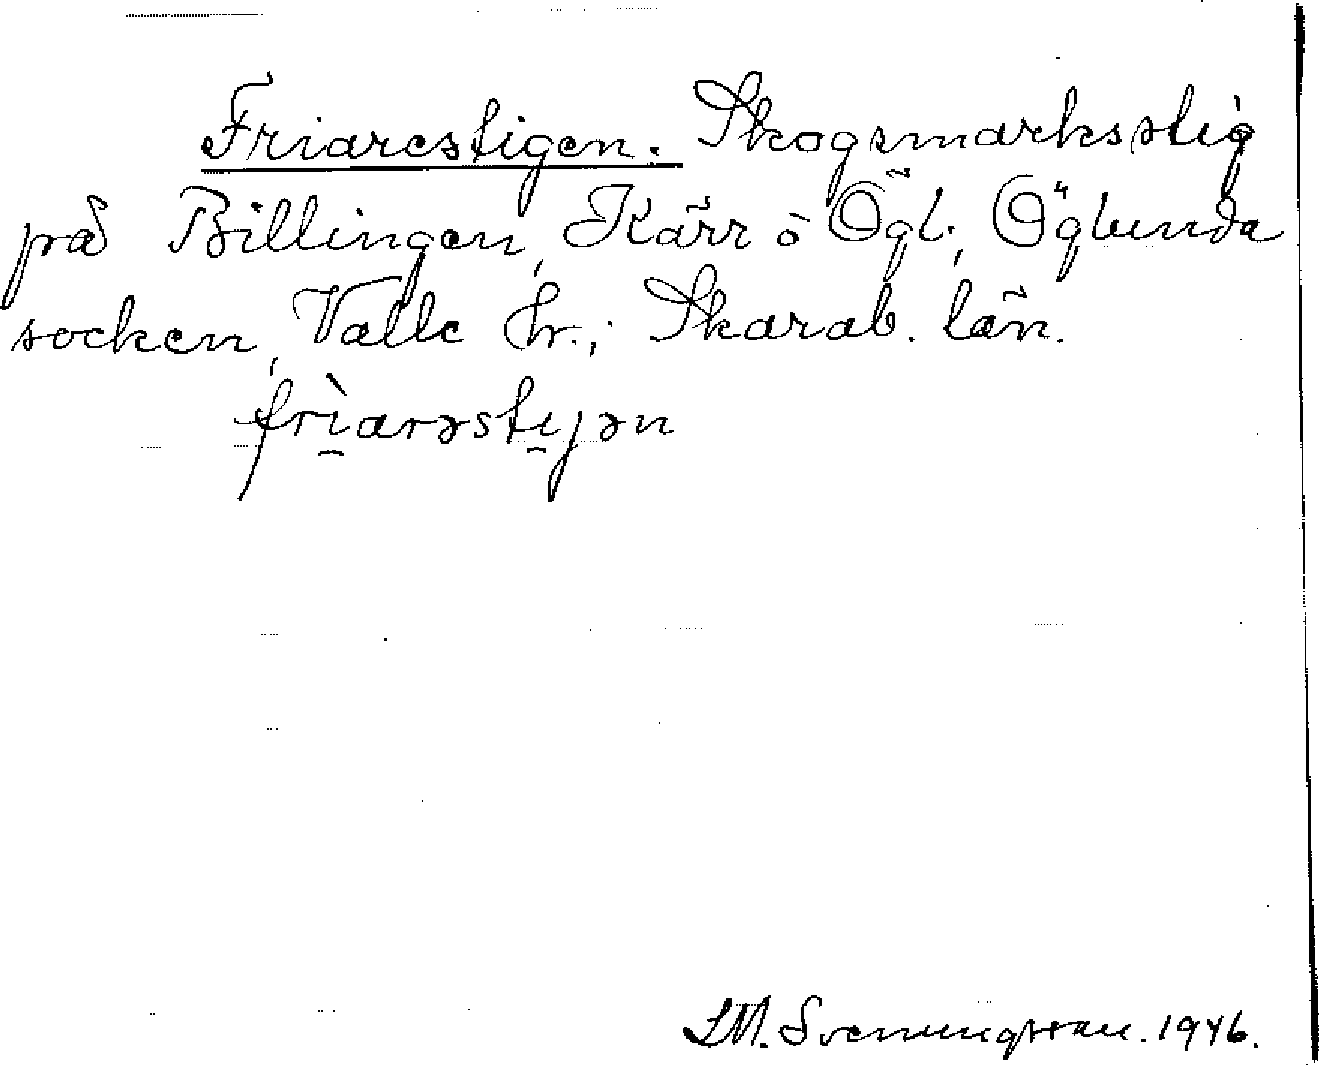 Friarestigen. Skogsmarksstig
på Billingen, Kärr ö Ögl., Öglunda
socken, Valle hr.; Skarab. län.
frìarəstıjən
SM. Svenningsson. 1946.